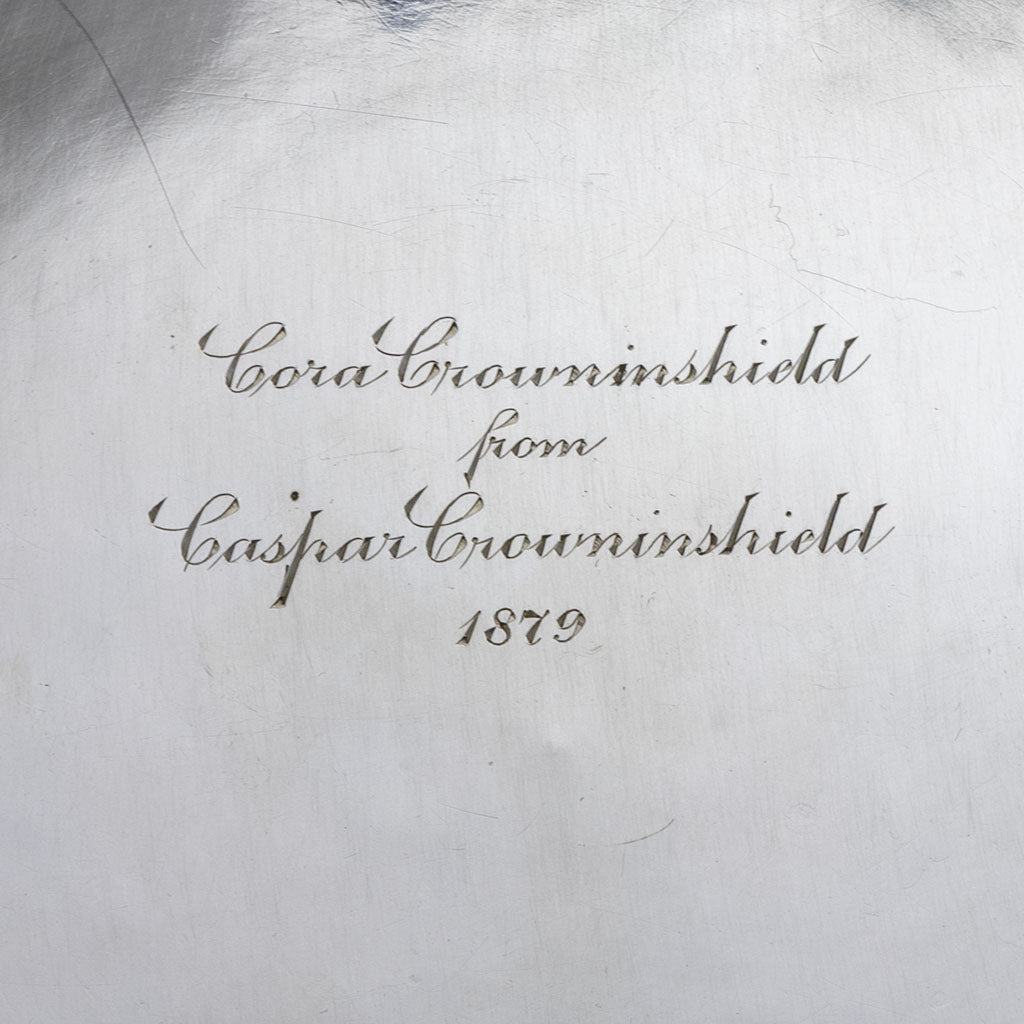 Cora Crowninshield
from
Caspar Crowninshield
1879